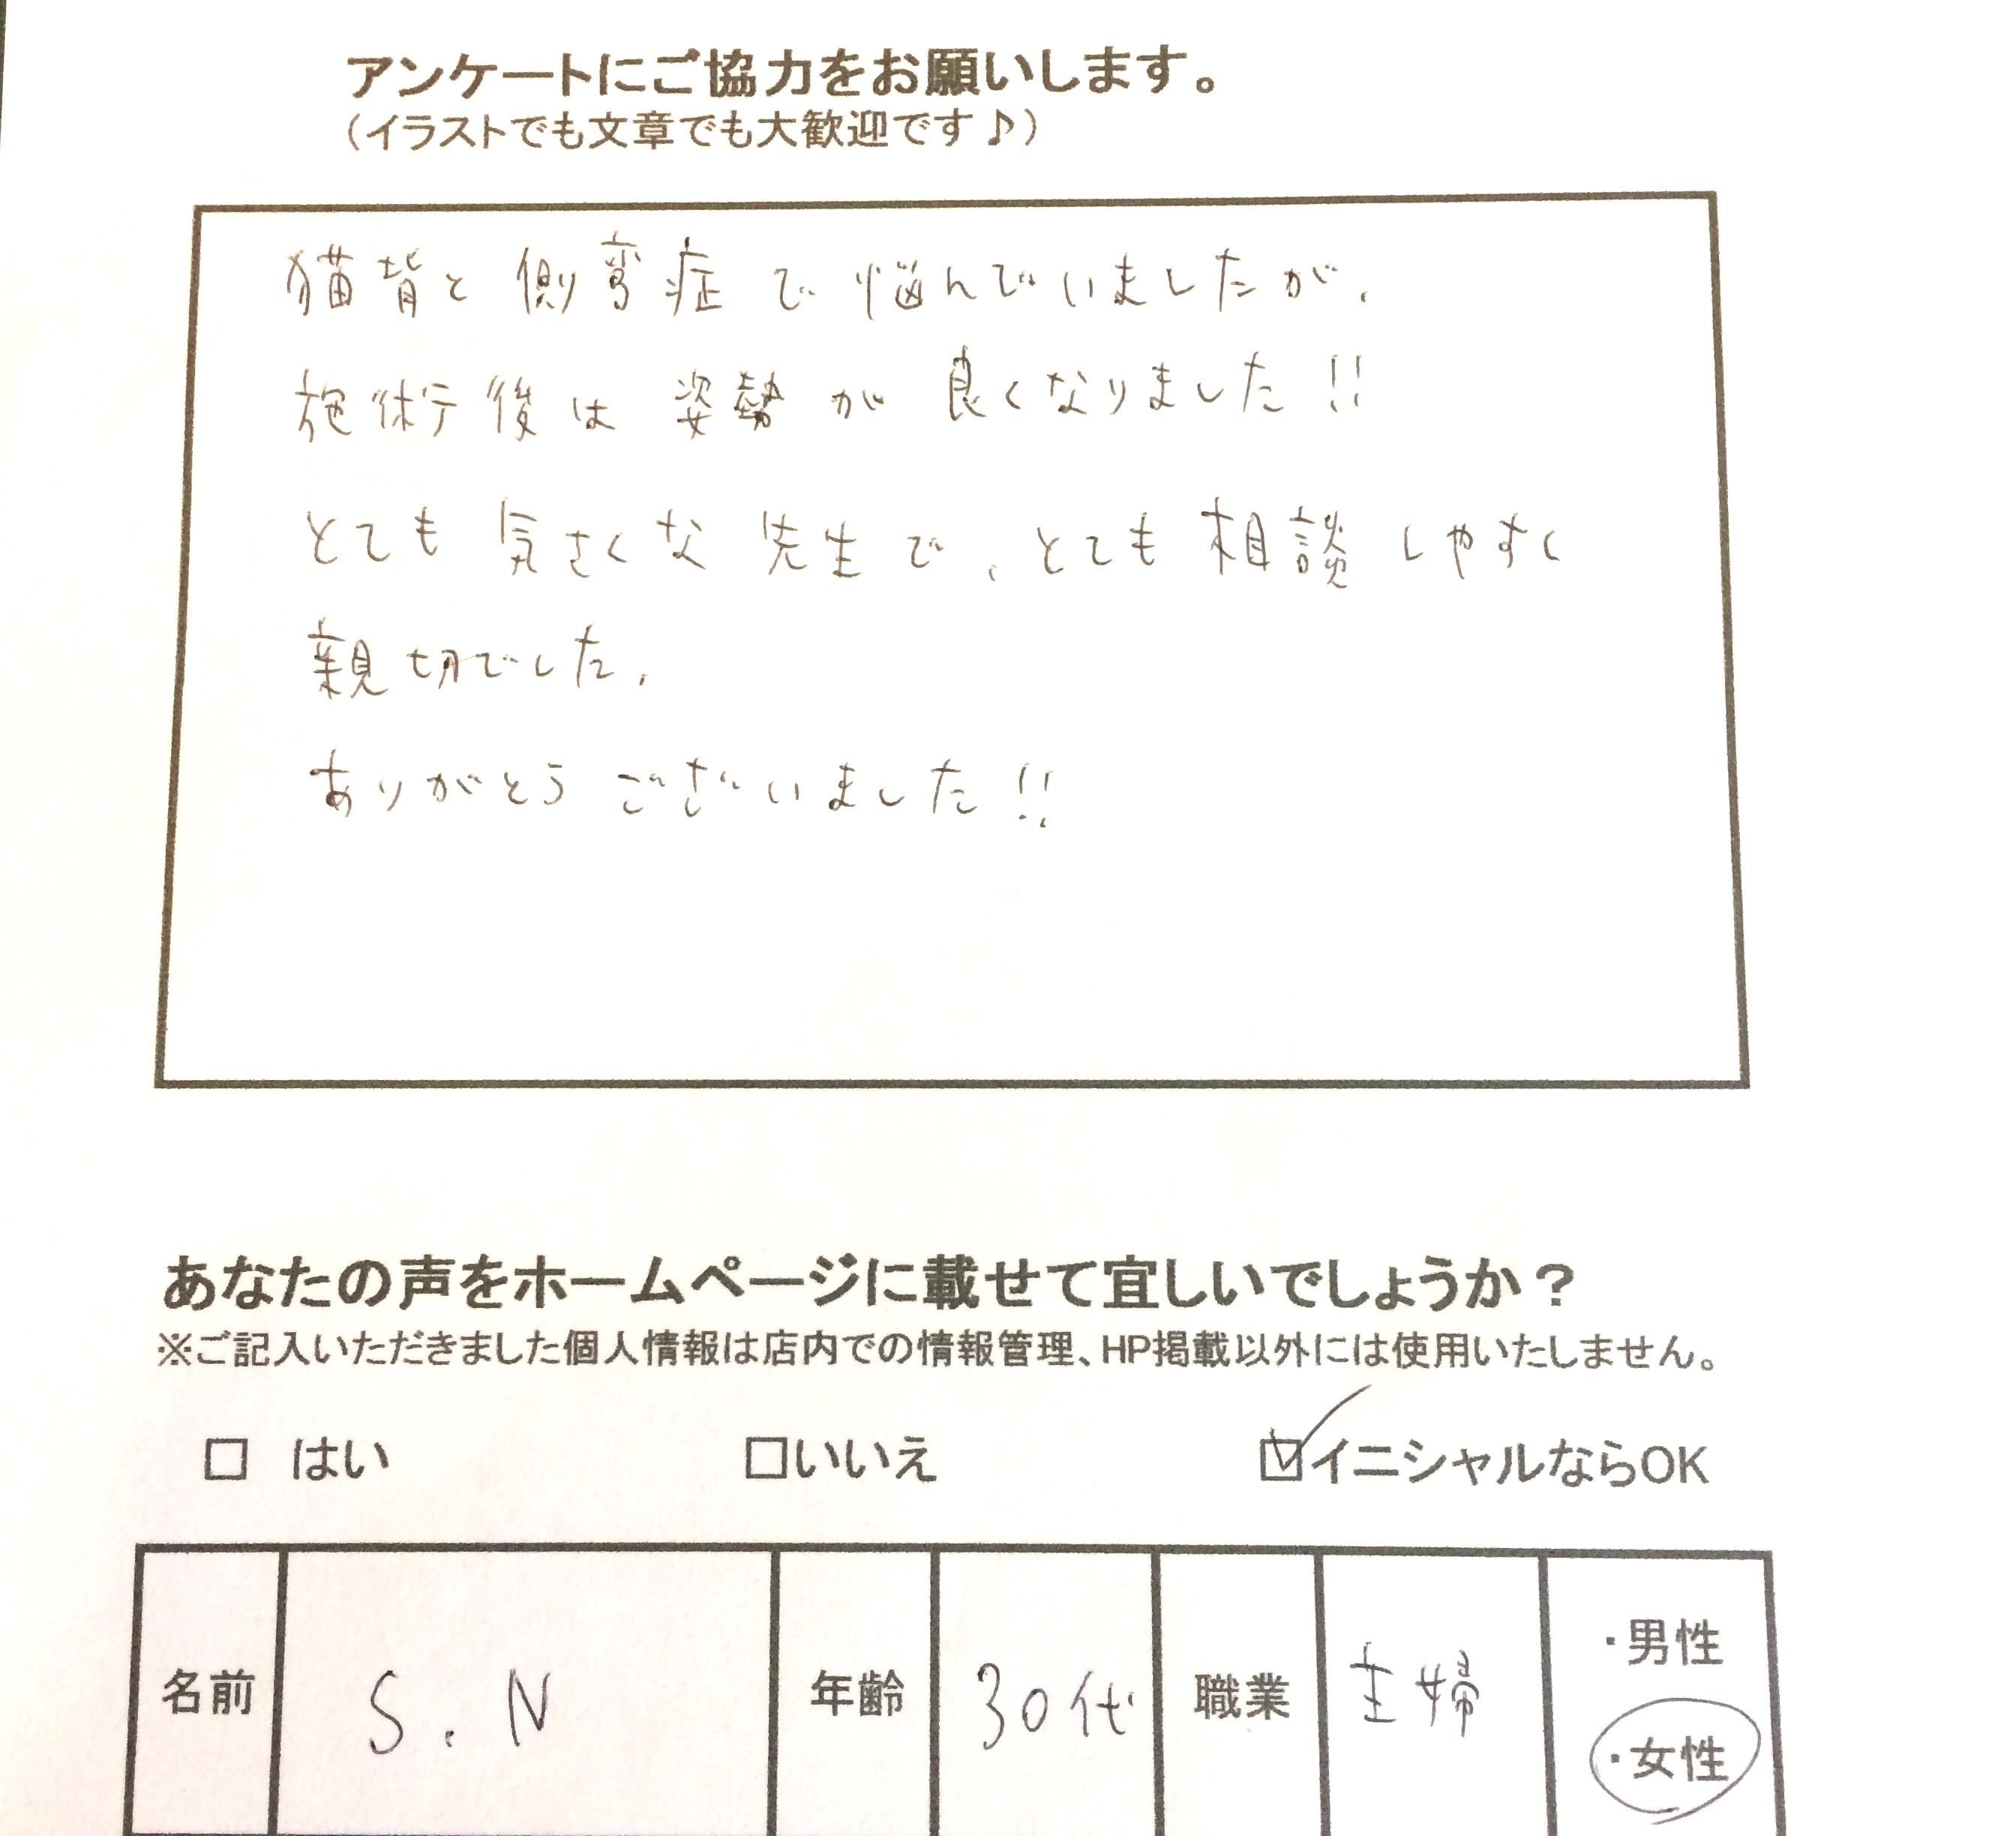 アンケートにご協力をお願いします。
（イラストでも文章でも大歓迎です♪）
猫背と側弯症で悩んでいましたが、
施術後は姿勢が良くなりました!!
とても気さくな先生で、とても相談しやすく
親切でした。
ありがとうございました!!
あなたの声をホームページに載せて宜しいでしょうか？
※ご記入いただきました個人情報は店内での情報管理、HP掲載以外には使用いたしません。
□ はい □いいえ ☑イニシャルならOK
・男性
名前 S.N 年齢 30代 職業 主婦
・女性